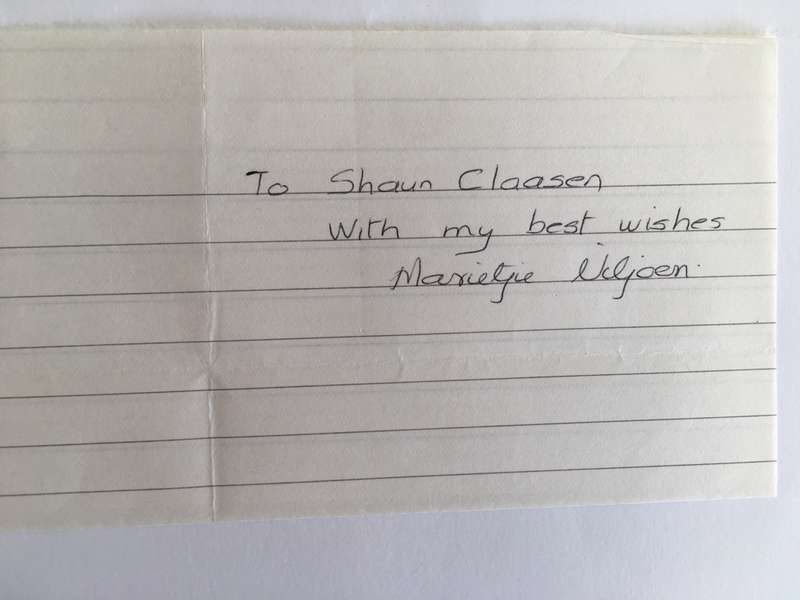 To Shaun Claasen
With my best wishes
Marietjie Viljoen.